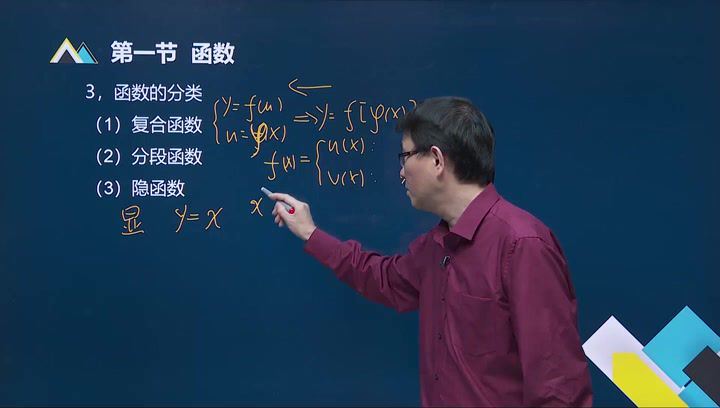 第一节 函数
3，函数的分类
（1）复合函数
y=f(u)
u=φ(x)
⇒y=f[φ(x)]
（2）分段函数
f(x)=
u(x):
v(x):
（3）隐函数
显 y=x x